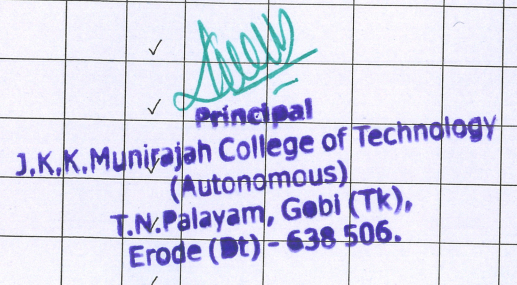 Principal
J.K.K.Munirajah College of Technology
(Autonomous)
T.N.Palayam, Gobi (Tk),
Erode (Dt) - 638 506.